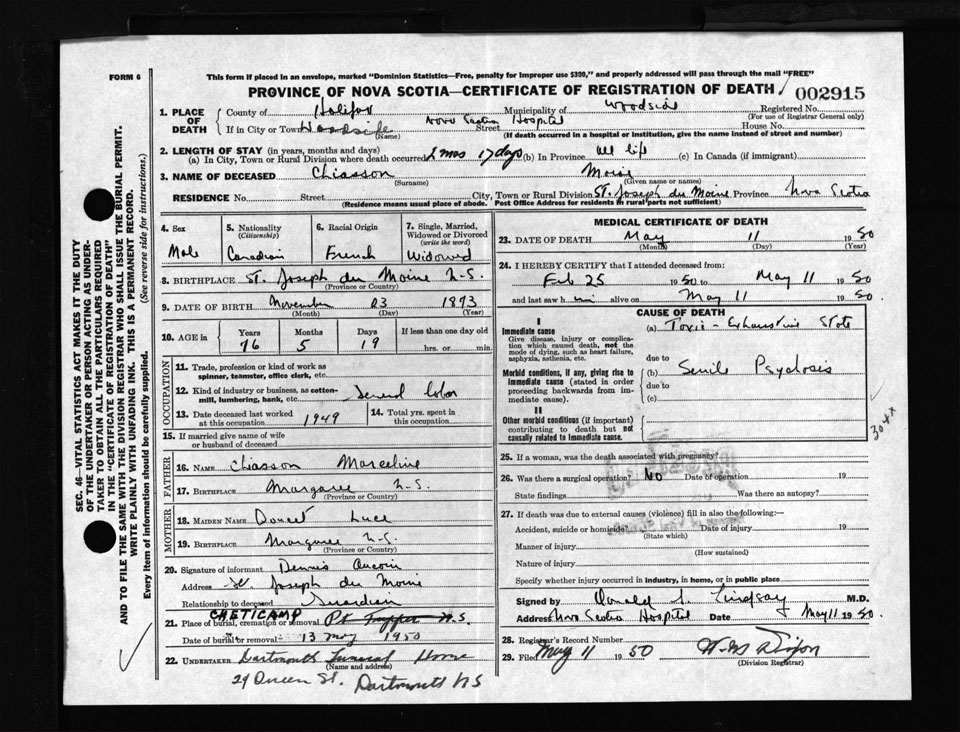 FORM 6
This form if placed in an envelope, marked "Dominion Statistics—Free, penalty for improper use $300," and properly addressed will pass through the mail "FREE"
PROVINCE OF NOVA SCOTIA—CERTIFICATE OF REGISTRATION OF DEATH
002915
1. PLACE OF DEATH
County of Halifax Municipality of Woodside Registered No.
(For use of Registrar General only)
If in City or Town Woodside Nova Scotia Hospital Street House No.
(Name) (If death occurred in a hospital or institution, give the name instead of street and number)
2. LENGTH OF STAY (in years, months and days)
(a) In City, Town or Rural Division where death occurred 2 mos 17 days (b) In Province all life (c) In Canada (if immigrant)
3. NAME OF DECEASED Chiasson
(Surname) (Given name or names)
RESIDENCE No. Street City, Town or Rural Division St. Joseph du Moine Province Nova Scotia
(Residence means usual place of abode. Post Office Address for residents in rural parts not sufficient)
4. Sex
Male
5. Nationality
(Citizenship)
Canadian
6. Racial Origin
French
7. Single, Married, Widowed or Divorced
(write the word)
Widowed
8. BIRTHPLACE St. Joseph du Moine N.S.
(Province or Country)
9. DATE OF BIRTH November 23 1873
(Month) (Day) (Year)
10. AGE in
Years Months Days If less than one day old
76 5 19 hrs. or min.
OCCUPATION
11. Trade, profession or kind of work as spinner, teamster, office clerk, etc.
12. Kind of industry or business, as cotton-mill, lumbering, bank, etc. labor
13. Date deceased last worked at this occupation 1949
14. Total yrs. spent in this occupation
15. If married give name of wife or husband of deceased
FATHER
16. NAME Chiasson Marceline
17. BIRTHPLACE Margaree N.S.
(Province or Country)
MOTHER
18. MAIDEN NAME Doucet Luce
19. BIRTHPLACE Margaree N.S.
(Province or Country)
20. Signature of informant Dennis Aucoin
Address St. Joseph du Moine
Relationship to deceased Guardian
CHETICAMP
21. Place of burial, cremation or removal Pt Tupper N.S.
Date of burial or removal 13 May 1950
22. UNDERTAKER Dartmouth Funeral Home
(Name and address)
29 Queen St. Dartmouth NS
MEDICAL CERTIFICATE OF DEATH
23. DATE OF DEATH May 11 1950
(Month) (Day)
24. I HEREBY CERTIFY that I attended deceased from:
Feb 25 1950 to May 11 1950
and last saw him alive on May 11 1950.
CAUSE OF DEATH
I
Immediate cause
Give disease, injury or complication which caused death, not the mode of dying, such as heart failure, asphyxia, asthenia, etc.
(a) Toxic-Exhaustive State
due to
Morbid conditions, if any, giving rise to immediate cause (stated in order proceeding backwards from immediate cause).
(b) Senile Psychosis
due to
(c)
II
Other morbid conditions (if important) contributing to death but not causally related to immediate cause.
304X
25. If a woman, was the death associated with pregnancy?
26. Was there a surgical operation? No Date of operation 19
State findings Was there an autopsy?
27. If death was due to external causes (violence) fill in also the following:—
Accident, suicide or homicide? Date of injury 19
(State which)
Manner of injury
(How sustained)
Nature of injury
Specify whether injury occurred in industry, in home, or in public place
Signed by Donald S. Lindsay M.D.
Address Nova Scotia Hospital Date May 11 1950
28. Registrar's Record Number
29. Filed May 11 1950
(Division Registrar)
SEC. 46—VITAL STATISTICS ACT MAKES IT THE DUTY
OF THE UNDERTAKER OR PERSON ACTING AS UNDER-
TAKER TO OBTAIN ALL THE PARTICULARS REQUIRED
IN THE "CERTIFICATE OF REGISTRATION OF DEATH"
AND TO FILE THE SAME WITH THE DIVISION REGISTRAR WHO SHALL ISSUE THE BURIAL PERMIT.
WRITE PLAINLY WITH UNFADING INK. THIS IS A PERMANENT RECORD.
Every item of information should be carefully supplied. (See reverse side for instructions.)